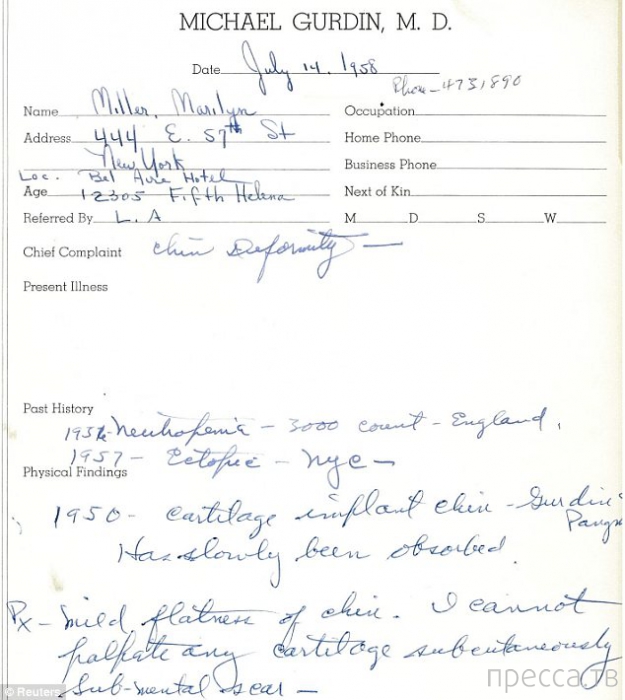 MICHAEL GURDIN, M. D.
Date July 14, 1958
Phone - 4731890
Name Miller, Marilyn
Occupation
Address 444 E. 57th St
Home Phone
New York
Business Phone
Loc. Bel Aire Hotel
Age 12305 Fifth Helena
Next of Kin
Referred By L. A
M D S W
Chief Complaint Chin Deformity —
Present Illness
Past History
Neutropenia - 3000 count - England.
1957 - Ectopic - NYC -
Physical Findings
1950 - cartilage implant chin - Gurdin
Has slowly been absorbed.
Px - mild flatness of chin. I cannot
palpate any cartilage subcutaneously
Sub-mental scar -
© Reuters
пресса.тв